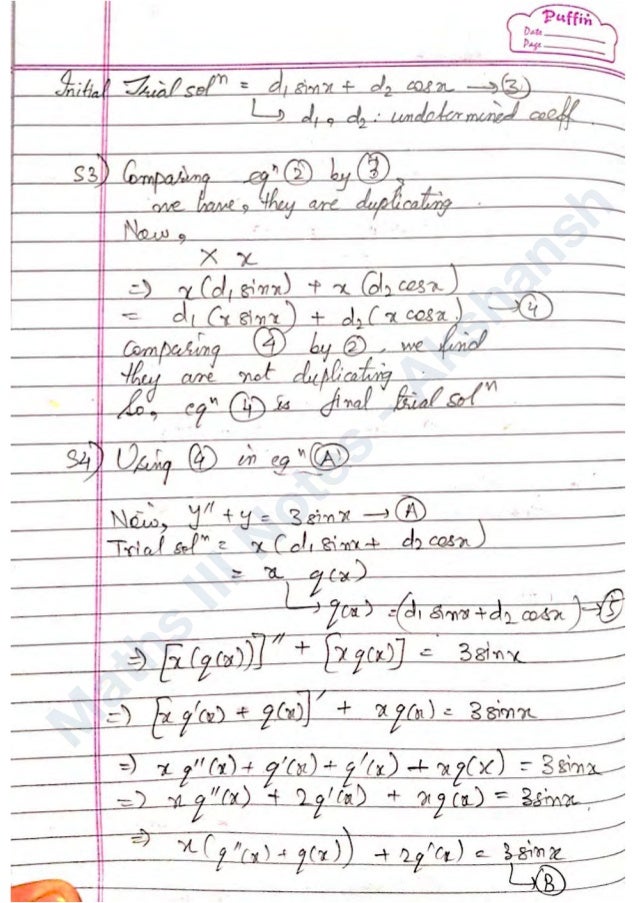 Puffin
Date
Page
Initial Trial solⁿ = d₁ sinx + d₂ cosx → ③
↳ d₁, d₂ : undetermined coeff.
S3) Comparing eqⁿ ② by ③,
we have, they are duplicating.
Now,
× x
⇒ x(d₁ sinx) + x(d₂ cosx)
= d₁(x sinx) + d₂(x cosx) → ④
comparing ④ by ②, we find
they are not duplicating.
So, eqⁿ ④ is final trial solⁿ
S4) Using ④ in eqⁿ Ⓐ
Now, y'' + y = 3sinx → Ⓐ
Trial solⁿ = x(d₁ sinx + d₂ cosx)
= x q(x)
↳ q(x) = (d₁ sinx + d₂ cosx) → ⑤
⇒ [x(q(x))]'' + [x q(x)] = 3sinx
⇒ [x q'(x) + q(x)]' + x q(x) = 3sinx
⇒ x q''(x) + q'(x) + q'(x) + x q(x) = 3sinx
⇒ x q''(x) + 2q'(x) + x q(x) = 3sinx.
⇒ x(q''(x) + q(x)) + 2q'(x) = 3sinx
↳ Ⓑ
Maths III Notes - Akshansh